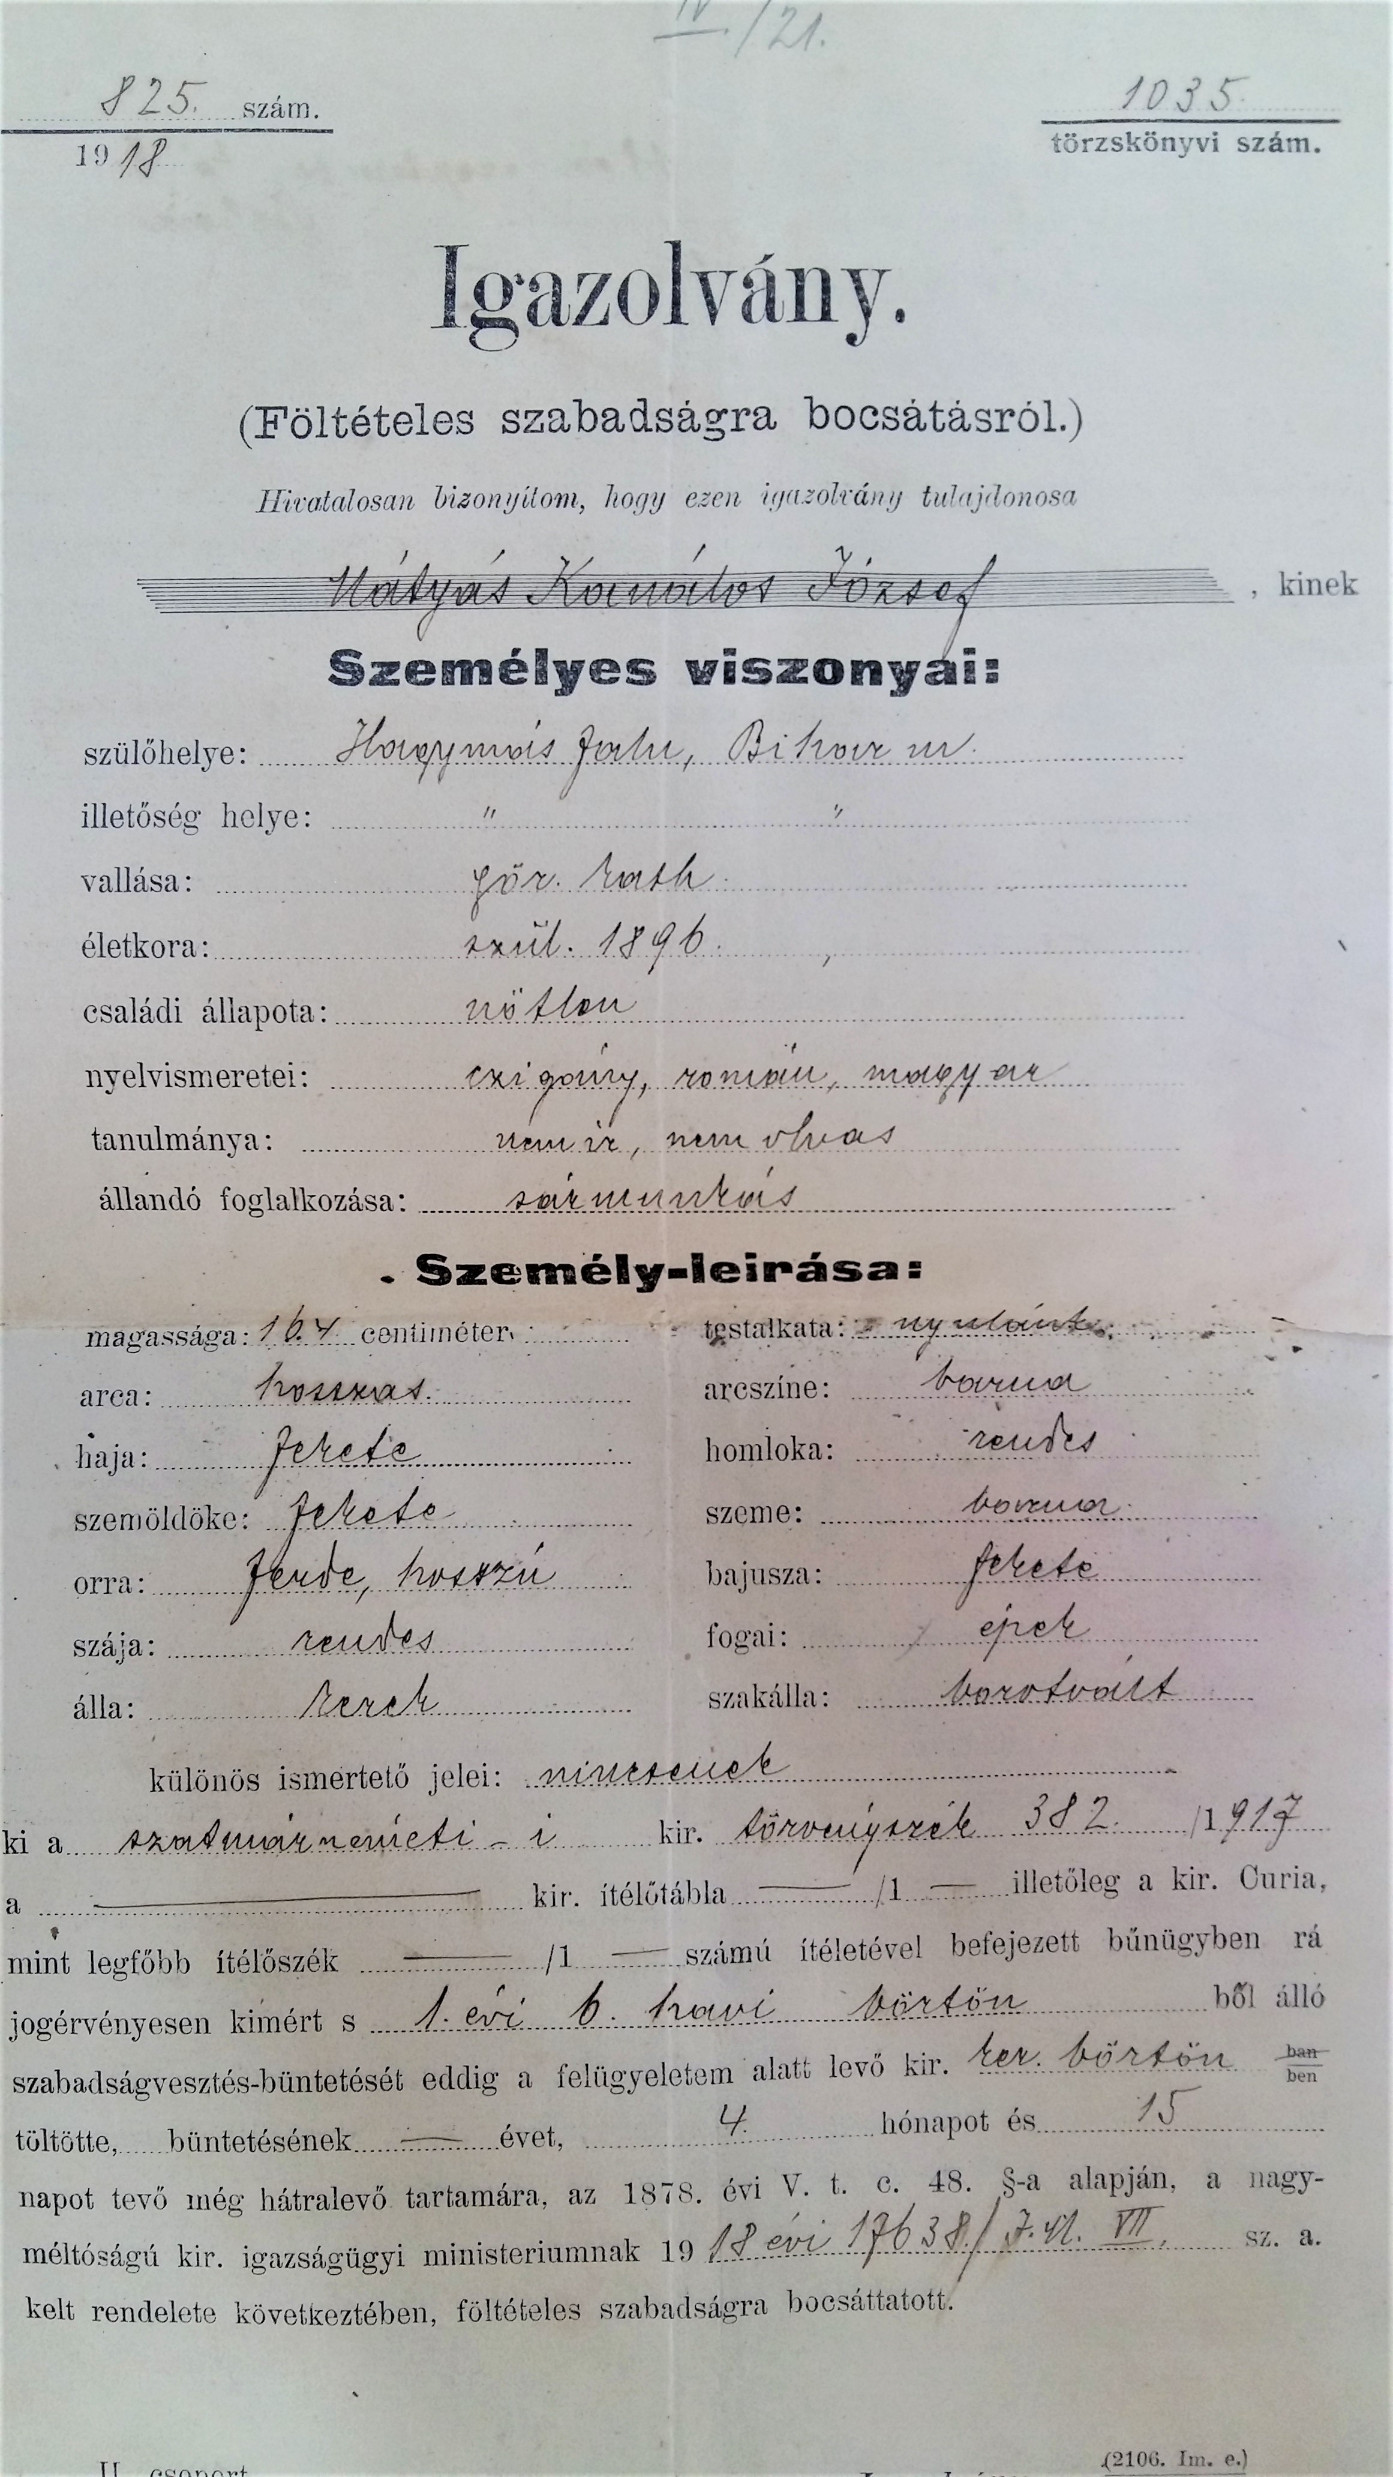 IV./21.
825. szám.
1918
1035.
törzskönyvi szám.
Igazolvány.
(Föltételes szabadságra bocsátásról.)
Hivatalosan bizonyítom, hogy ezen igazolvány tulajdonosa
Mátyás Kanálos József, kinek
Személyes viszonyai:
szülőhelye: Hagymás falu, Bihar m.
illetőség helye: " "
vallása: gör. kath.
életkora: szül. 1896.
családi állapota: nőtlen
nyelvismeretei: czigány, román, magyar
tanulmánya: nem ir, nem olvas
állandó foglalkozása: sármunkás
Személy-leirása:
magassága: 164 centiméter, testalkata: nyulánk
arca: hosszas. arcszíne: barna
haja: fekete homloka: rendes
szemöldöke: fekete szeme: barna
orra: ferde, hosszú bajusza: fekete
szája: rendes fogai: épek
álla: kerek szakálla: borotvált
különös ismertető jelei: nincsenek
ki a szatmárnémeti-i kir. törvényszék 382. /1917
a — kir. ítélőtábla — /1 — illetőleg a kir. Curia,
mint legfőbb ítélőszék — /1 — számú ítéletével befejezett bűnügyben rá
jogérvényesen kimért s 1. évi 6. havi börtön ből álló
szabadságvesztés-büntetését eddig a felügyeletem alatt levő kir. ker. börtön ban ben
töltötte, büntetésének — évet, 4. hónapot és 15
napot tevő még hátralevő tartamára, az 1878. évi V. t. c. 48. §-a alapján, a nagy-
méltóságú kir. igazságügyi ministeriumnak 1918 évi 17638/I.M. VII. sz. a.
kelt rendelete következtében, föltételes szabadságra bocsáttatott.
(2106. Im. e.)
II. csoport